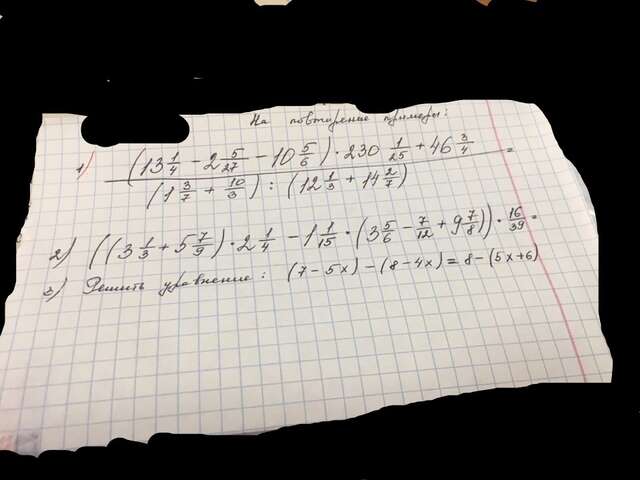 На повторение примеры:
1) ((13 1/4 - 2 5/27 - 10 5/6) · 230 1/25 + 46 3/4) / ((1 3/7 + 10/3) : (12 1/3 + 14 2/7)) =
2) ((3 1/3 + 5 7/9) · 2 1/4 - 1 1/15 · (3 5/6 - 7/12 + 9 7/8)) · 16/39 =
3) Решить уравнение: (7 - 5x) - (8 - 4x) = 8 - (5x + 6)